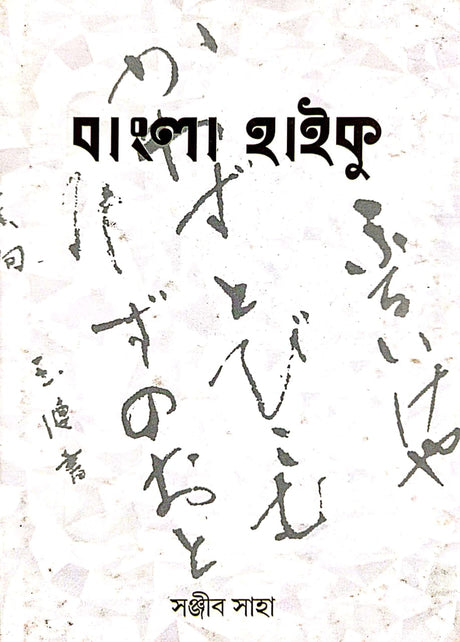 বাংলা হাইকু
ふるいけや
とびこむ
ずのおと
সঞ্জীব সাহা